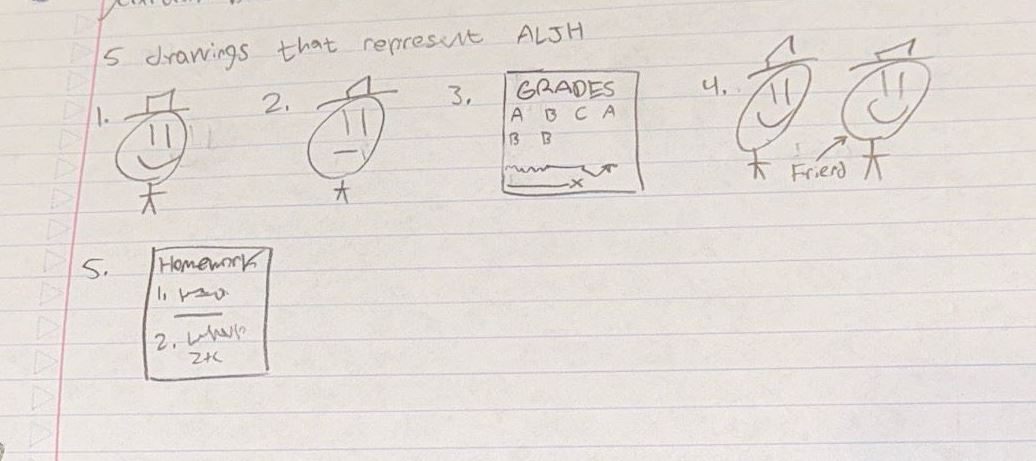 5 drawings that represent ALJH
1.
2.
3.
GRADES
A B C A
B B
x
4.
Friend
5.
Homework
1.
2.